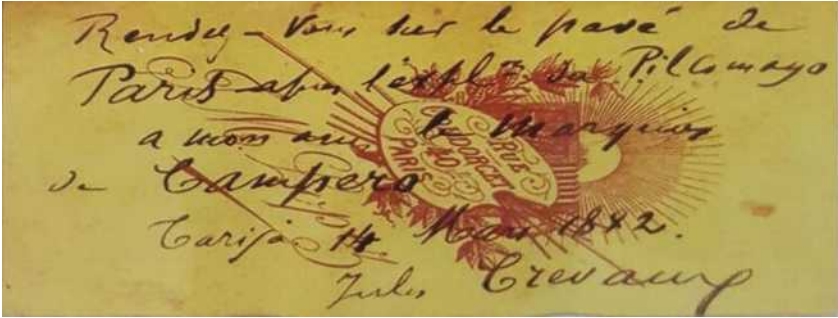 Rendez-Vous sur le pavé de
Paris après l'expl^on du Pilcomayo
a mon ami le Marquis
de Campero
Tarija 14 Mars 1882.
Jules Crevaux
RUE
CONDORCET
40
PARIS